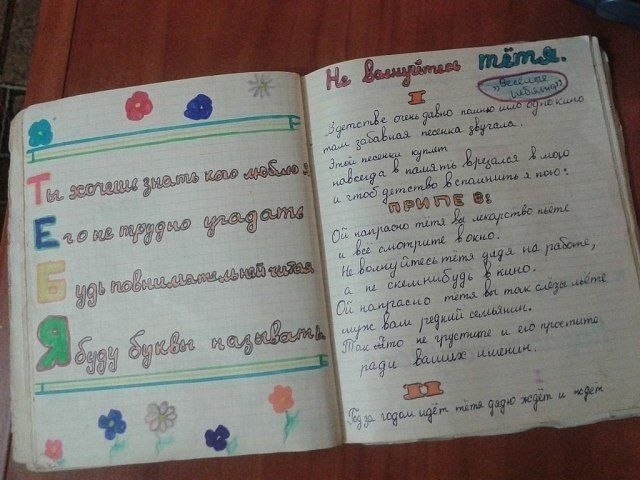 Ты хочешь знать кого люблю я
Его не трудно угадать
Будь повнимательней читая
Я буду буквы называть.
Не волнуйтесь тётя.
"Весёлые ребята"
I
В детстве очень давно помню шло одно кино
там забавная песенка звучала.
Этой песенки куплет
навсегда в память врезался в мою
и чтоб детство вспомнить я пою:
ПРИПЕВ:
Ой напрасно тётя вы лекарство пьёте
и всё смотрите в окно.
Не волнуйтесь тётя дядя на работе,
а не скемнибудь в кино.
Ой напрасно тётя вы так слёзы льёте
муж вам редкий семьянин.
Так что не грустите и его простите
ради ваших именин.
II
Год за годом идёт тётя дядю ждёт и ждет